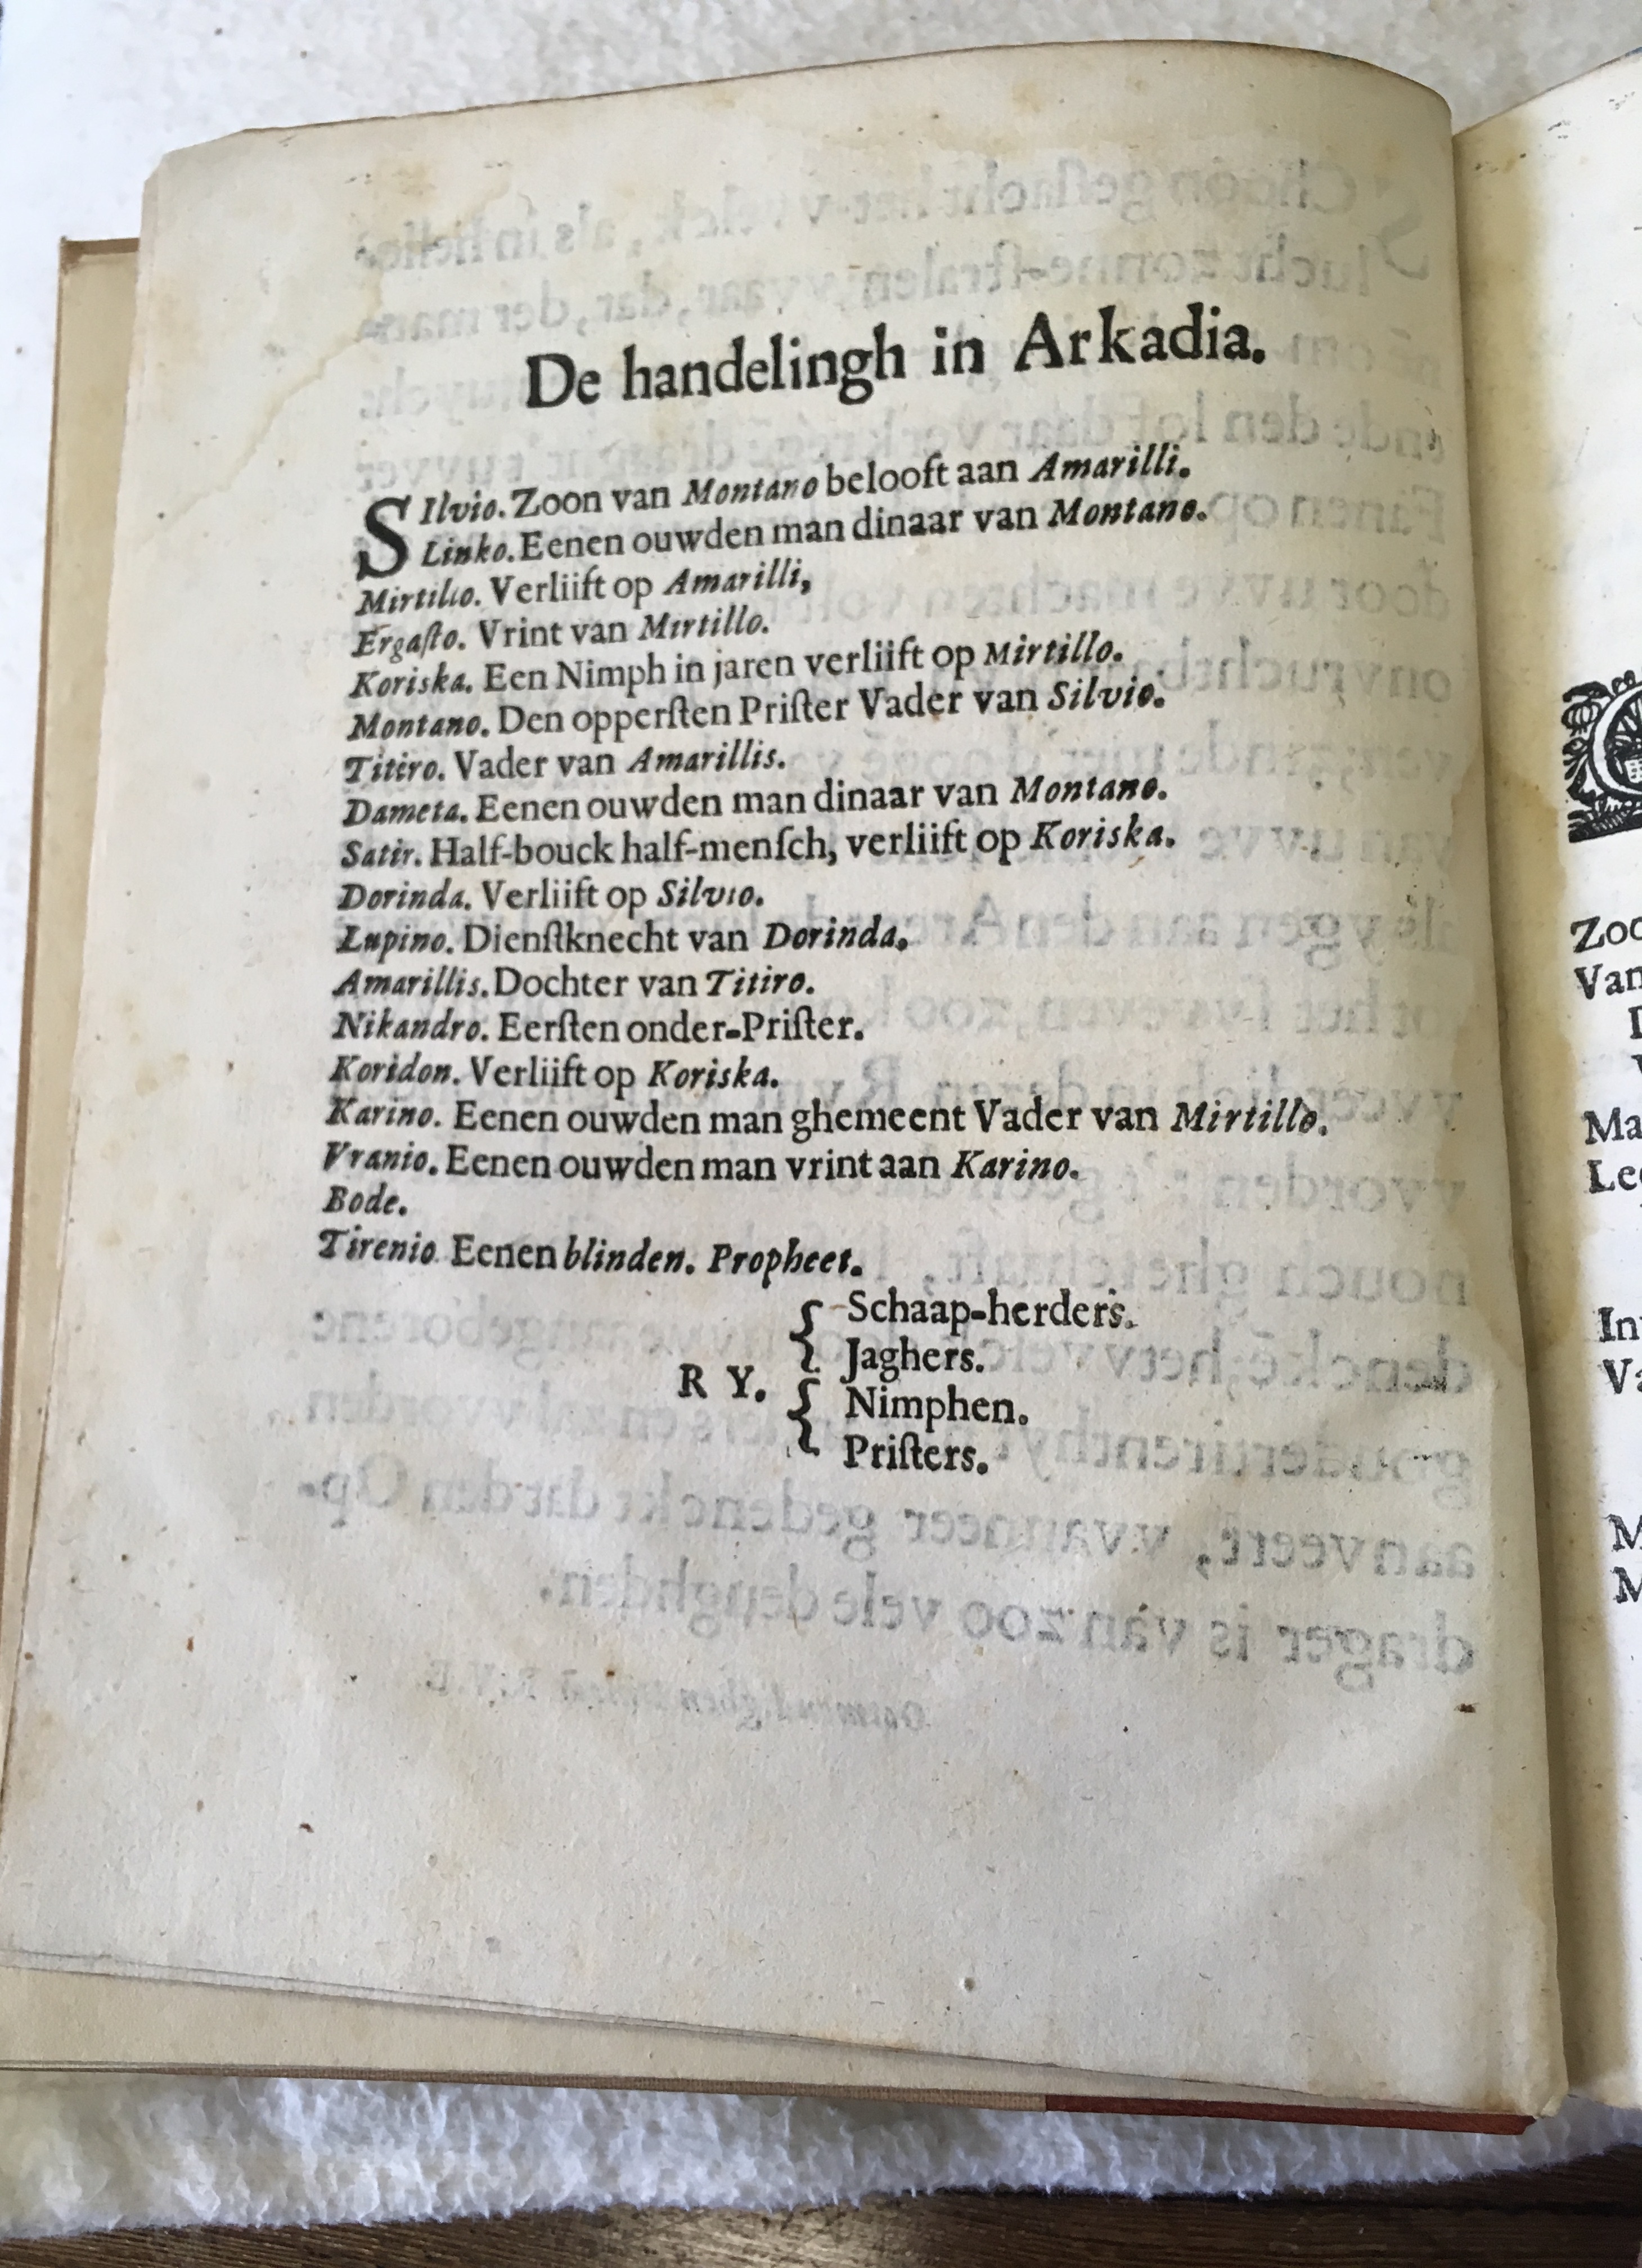 De handelingh in Arkadia.
SIlvio. Zoon van Montano belooft aan Amarilli.
Linko. Eenen ouwden man dinaar van Montano.
Mirtillo. Verliift op Amarilli,
Ergaſto. Vrint van Mirtillo.
Koriska. Een Nimph in jaren verliift op Mirtillo.
Montano. Den opperſten Priſter Vader van Silvio.
Titiro. Vader van Amarillis.
Dameta. Eenen ouwden man dinaar van Montano.
Satir. Half-bouck half-menſch, verliift op Koriska.
Dorinda. Verliift op Silvio.
Lupino. Dienſtknecht van Dorinda.
Amarillis. Dochter van Titiro.
Nikandro. Eerſten onder-Priſter.
Koridon. Verliift op Koriska.
Karino. Eenen ouwden man ghemeent Vader van Mirtillo.
Vranio. Eenen ouwden man vrint aan Karino.
Bode.
Tirenio. Eenen blinden. Propheet.
R Y.
Schaap-herders.
Jaghers.
Nimphen.
Priſters.